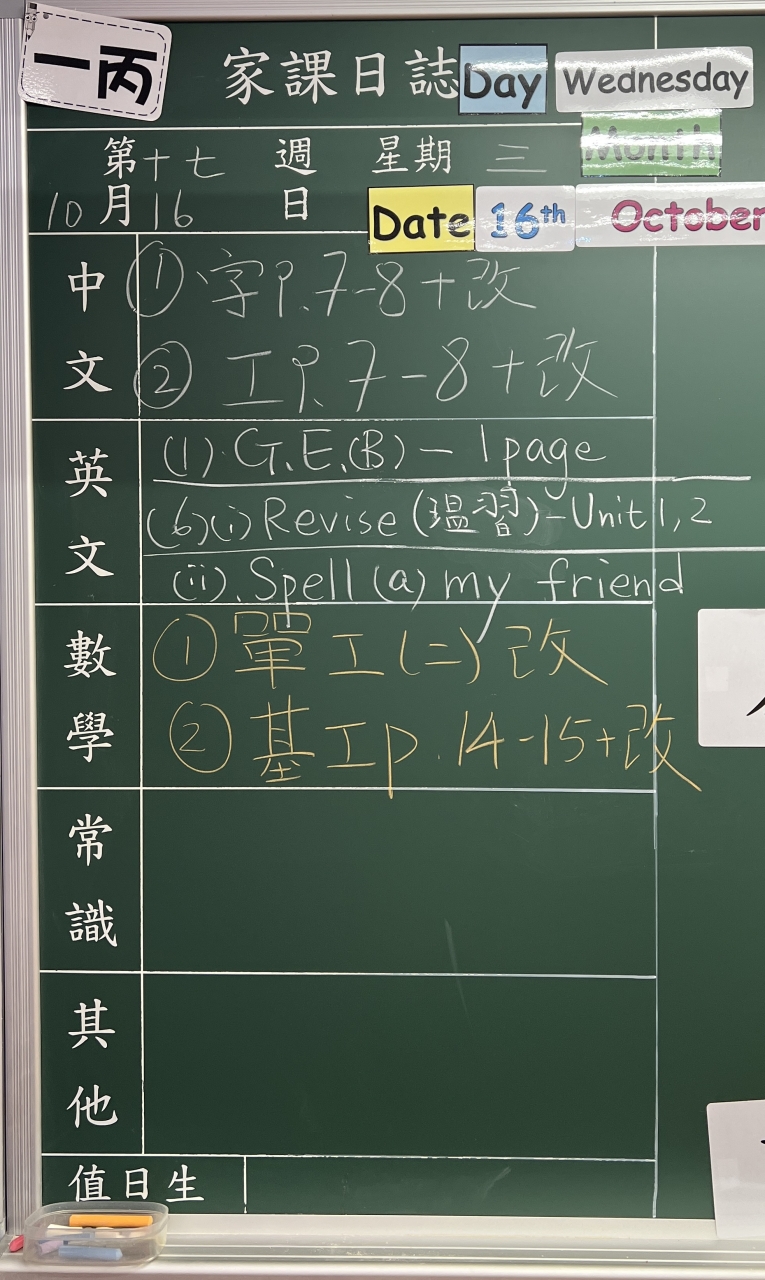 一丙
家課日誌 Day Wednesday
第十七週 星期三 Month
10月16日 Date 16th October
中文 ① 字P.7-8+改
② 工P.7-8+改
英文 (1) G.E.(B) - 1 page
(6)(i) Revise (溫習) - Unit 1, 2
(ii). Spell (a) my friend
數學 ① 單工(二)改
② 基工p.14-15+改
常識
其他
值日生